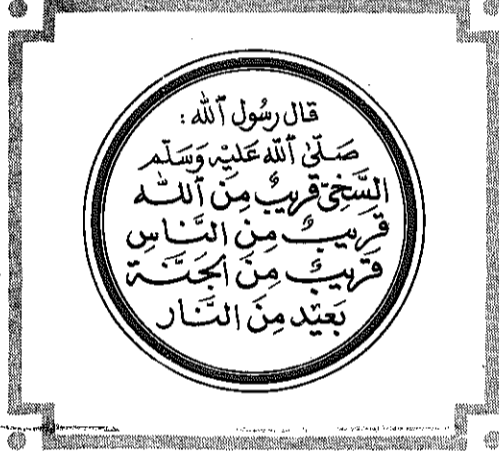 قال رسُول ٱللّه :
صَلّىٰ ٱللّه عَليْهِ وَسَلّم
السَّخِىّ قَرِيبٌ مِنَ ٱللّه
قَرِيبٌ مِنَ النَّاسِ
قَرِيبٌ مِنَ الجَنَّة
بَعيْد مِنَ النَّار